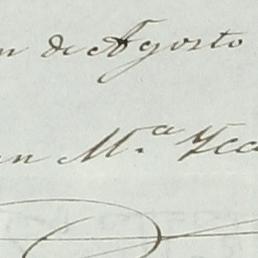 n de Agosto
an M.ª Yca